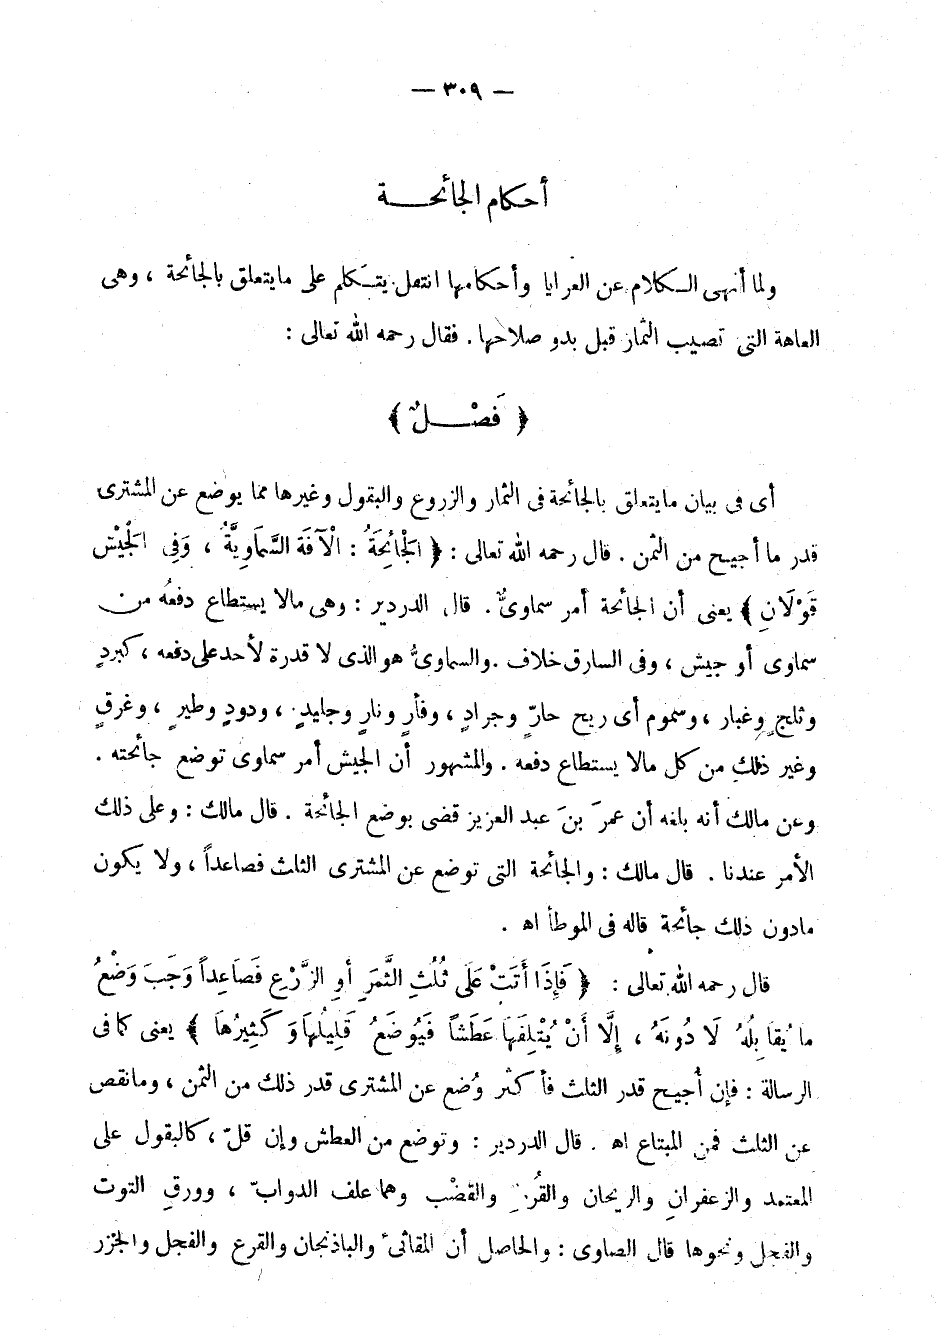 — ٣٠٩ —
أحكام الجائحـــة
ولما أنهى الكلام عن العرايا وأحكامها انتقل يتكلم على ما يتعلق بالجائحة ، وهى
العاهة التى تصيب الثمار قبل بدو صلاحها . فقال رحمه الله تعالى :
﴿ فَصْـــلٌ ﴾
أى فى بيان ما يتعلق بالجائحة فى الثمار والزروع والبقول وغيرها مما يوضع عن المشترى
قدر ما أجيح من الثمن . قال رحمه الله تعالى : ﴿ الْجَائِحَةُ : الْآفَةُ السَّمَاوِيَّةُ ، وَفِى الْجَيْشِ
قَوْلَانِ ﴾ يعنى أن الجائحة أمر سماوىٌّ . قال الدردير : وهى مالا يستطاع دفعُه من
سماوى أو جيش ، وفى السارق خلاف . والسماوىُّ هو الذى لا قدرة لأحد على دفعه ، كبردٍ
وثلجٍ وغبار ، وسموم أى ريح حارّ وجرادٍ ، وفأرٍ ونارٍ وجليدٍ ، ودودٍ وطيرٍ ، وغرقٍ
وغير ذلك من كل مالا يستطاع دفعه . والمشهور أن الجيش أمر سماوى توضع جائحته .
وعن مالك أنه بلغه أن عمرَ بنَ عبد العزيز قضى بوضع الجائحة . قال مالك : وعلى ذلك
الأمر عندنا . قال مالك : والجائحة التى توضع عن المشترى الثلث فصاعداً ، ولا يكون
مادون ذلك جائحة قاله فى الموطأ اه .
قال رحمه الله تعالى : ﴿ فَإِذَا أَتَتْ عَلَى ثُلُثِ الثَّمَرِ أَوِ الزَّرْعِ فَصَاعِداً وَجَبَ وَضْعُ
مَا يُقَابِلُهُ لَا دُونَهُ ، إِلَّا أَنْ يُتْلِفَهَا عَطَشاً فَيُوضَعُ قَلِيلُهَا وَكَثِيرُهَا ﴾ يعنى كما فى
الرسالة : فإن أُجيح قدر الثلث فأكثر وُضع عن المشترى قدر ذلك من الثمن ، وما نقص
عن الثلث فمن المبتاع اه . قال الدردير : وتوضع من العطش وإن قلّ ، كالبقول على
المعتمد والزعفران والريحان والقُرط والقضْب وهما علف الدوابّ ، وورق التوت
والفجل ونحوها قال الصاوى : والحاصل أن المقاثئ والباذنجان والقرع والفجل والجزر